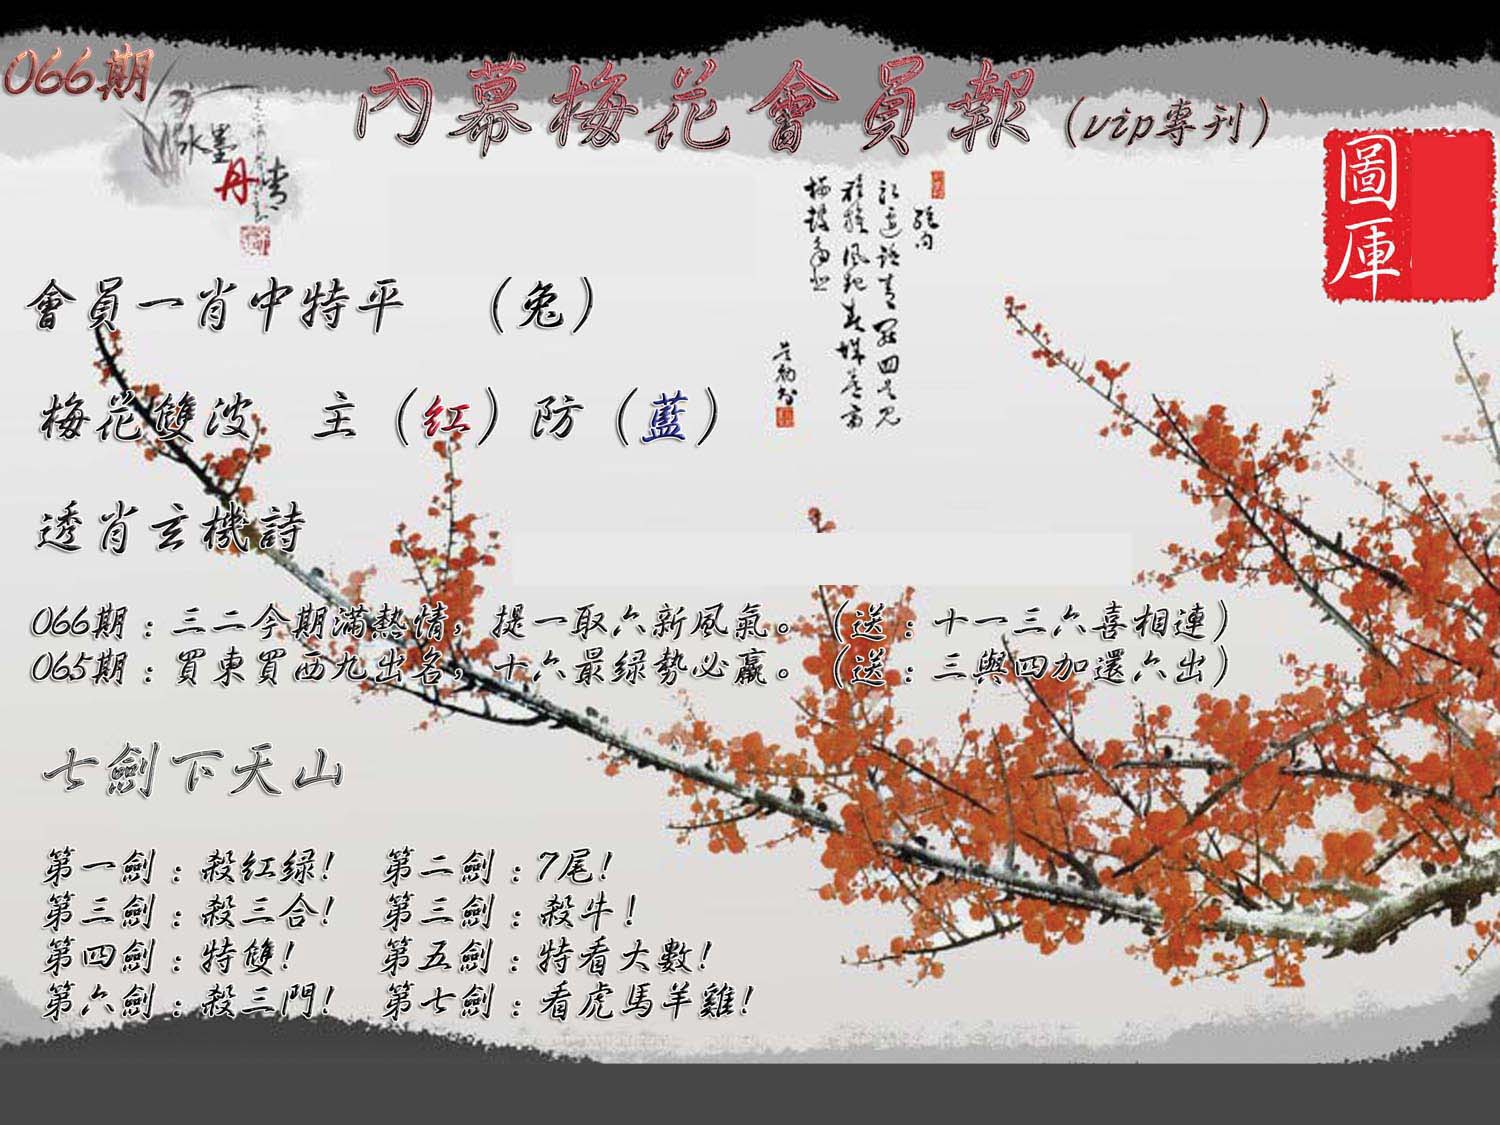 066期
內幕梅花會員報（vip專刊）
水墨
丹青
圖
庫
會員一肖中特平　（兔）
梅花雙波　主（紅）防（藍）
透肖玄機詩
066期：三二今期滿熱情，提一取六新風氣。（送：十一三六喜相連）
065期：買東買西九出名，十六最绿勢必贏。（送：三與四加還六出）
七劍下天山
第一劍：殺紅绿!　第二劍：7尾!
第三劍：殺三合!　第三劍：殺牛!
第四劍：特雙!　第五劍：特看大數!
第六劍：殺三門!　第七劍：看虎馬羊雞!